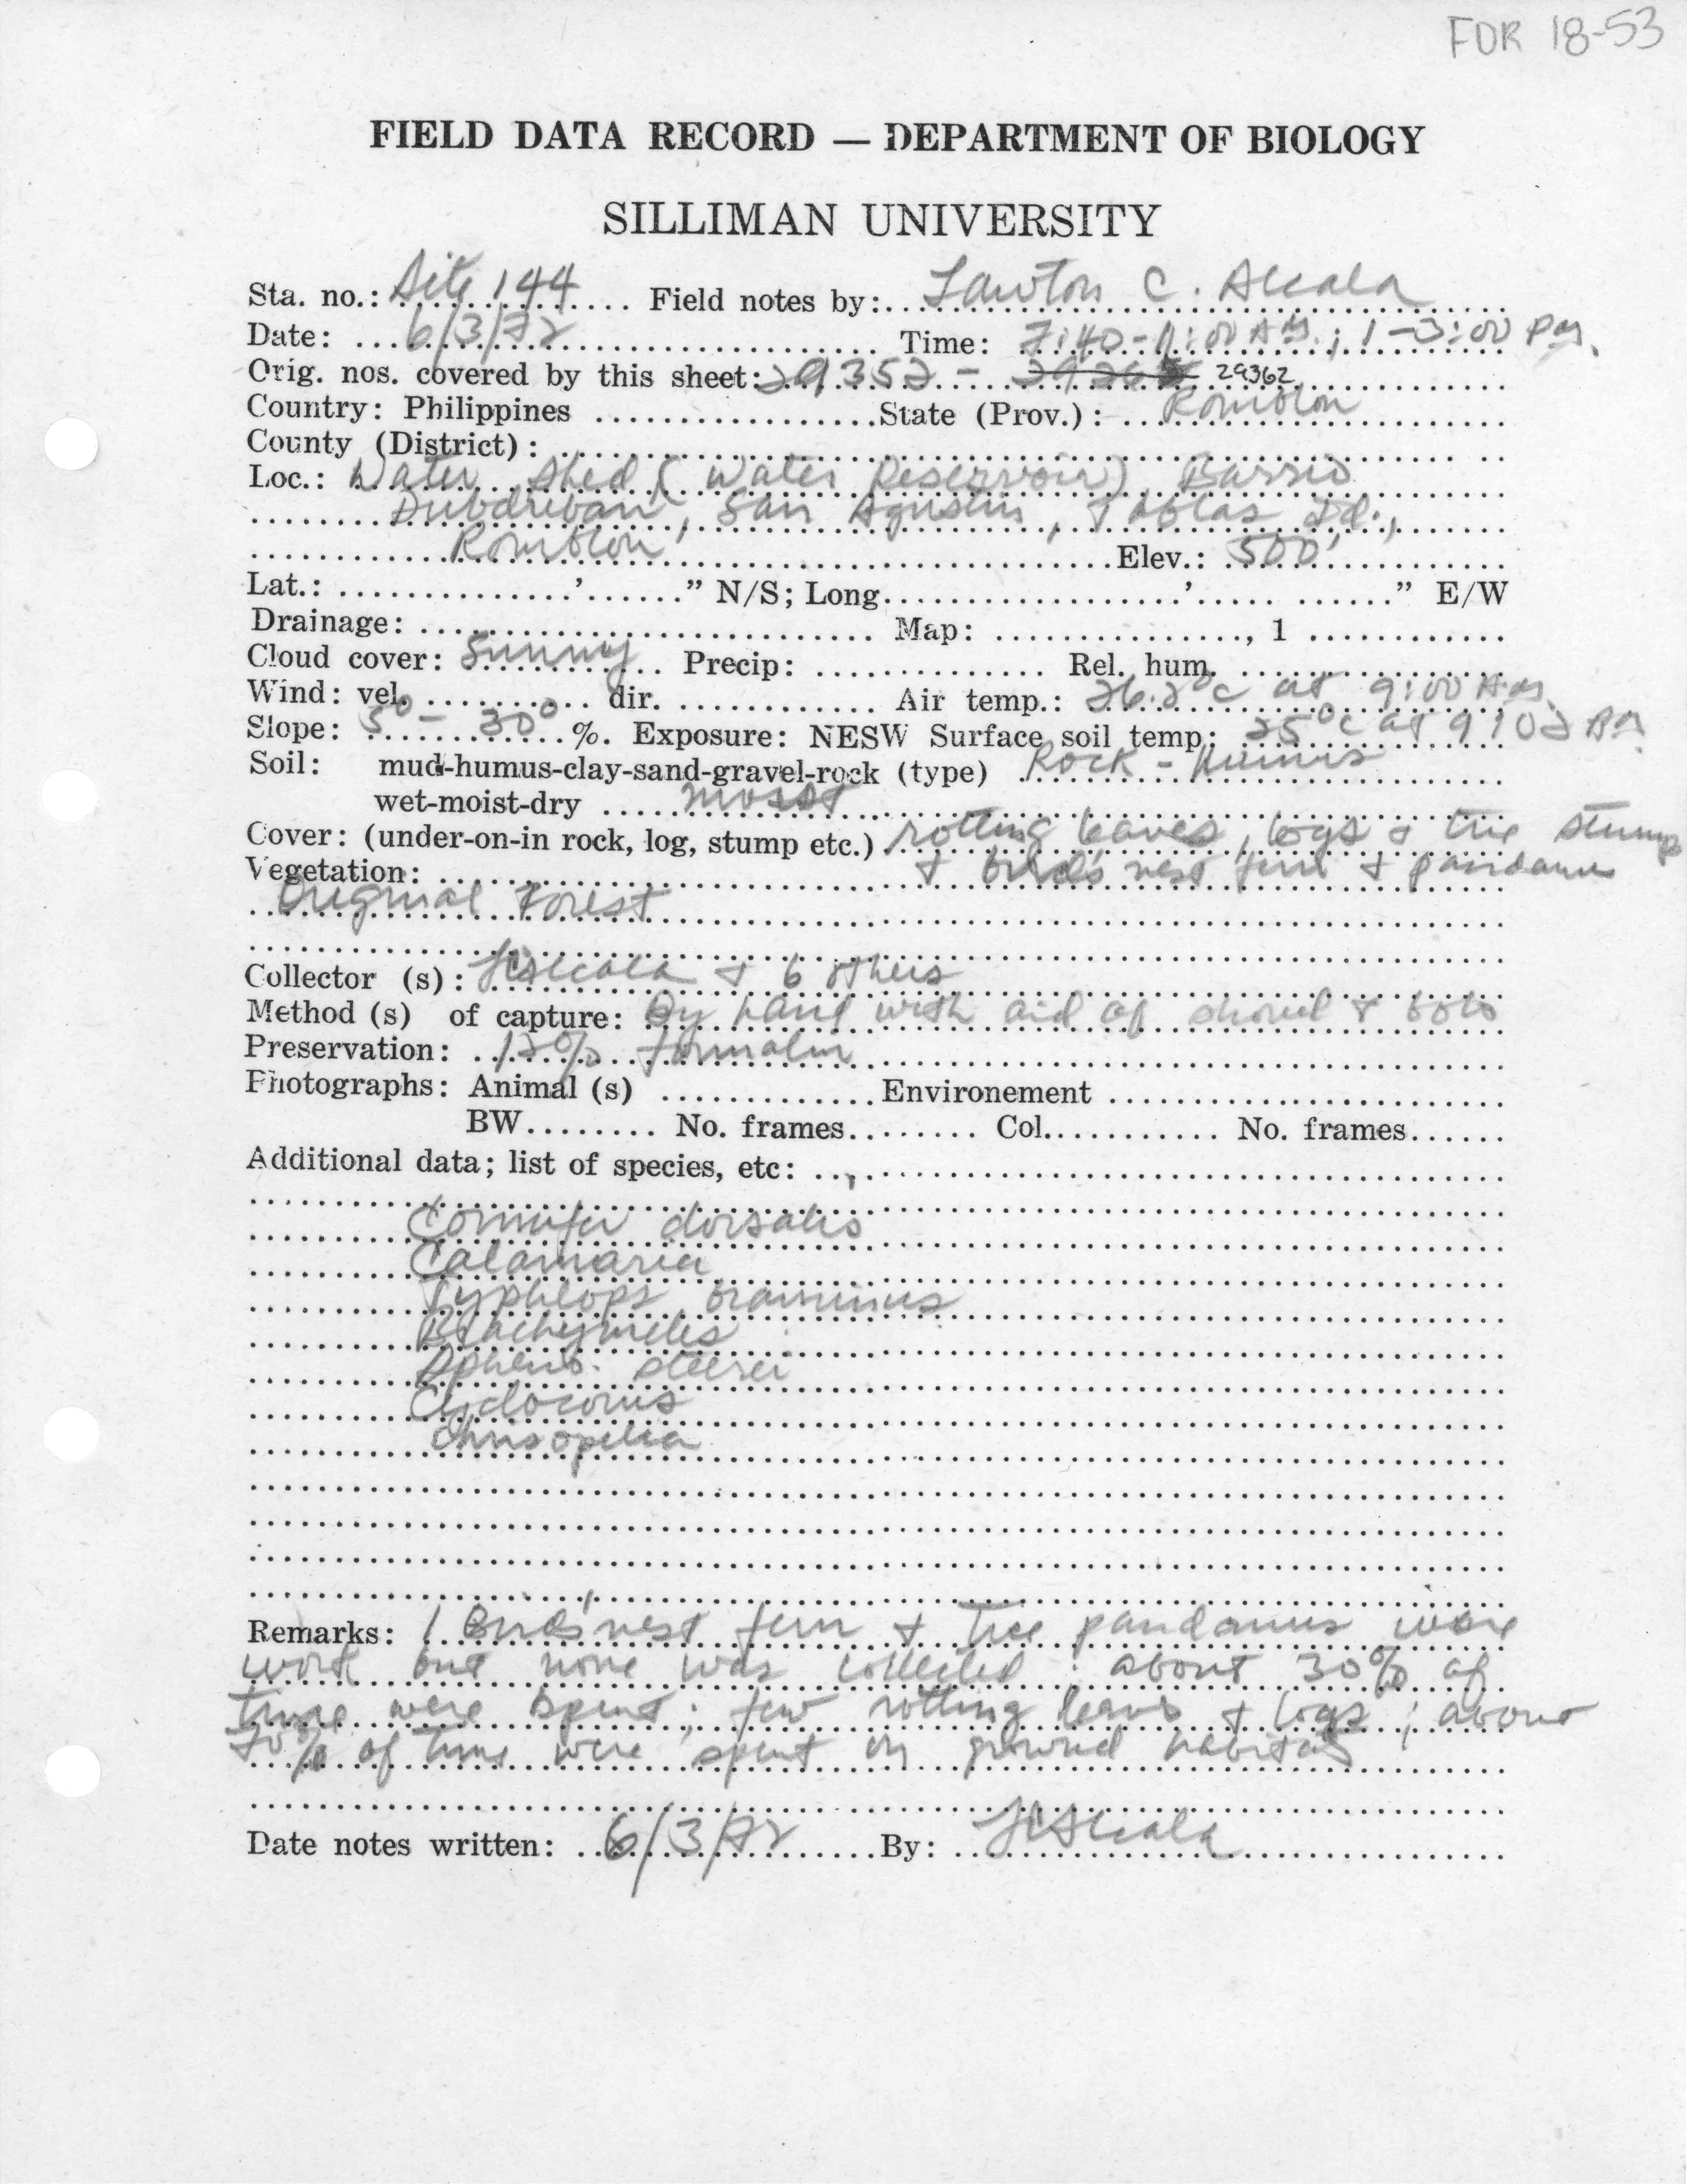 FDR 18-53
FIELD DATA RECORD — DEPARTMENT OF BIOLOGY
SILLIMAN UNIVERSITY
Sta. no.: Site 144 Field notes by: Lawton C. Alcala
Date: 6/3/72 Time: 7:40-11:00 AM.; 1-3:00 PM.
Orig. nos. covered by this sheet: 29352 - 29362
Country: Philippines State (Prov.): Romblon
County (District):
Loc.: Water Shed (Water Reservoir), Barrio
Dubduban, San Agustin, Tablas Id.,
Romblon Elev.: 500'
Lat.: ' " N/S; Long. ' " E/W
Drainage: Map: , 1
Cloud cover: Sunny Precip: Rel. hum.
Wind: vel. dir. Air temp.: 26.2°C at 9:00 AM.
Slope: 5° - 30° %. Exposure: NESW Surface soil temp: 25°C at 9:02 AM
Soil: mud-humus-clay-sand-gravel-rock (type) Rock - Humus
wet-moist-dry moist
Cover: (under-on-in rock, log, stump etc.) rotting leaves, logs & tree stumps
Vegetation: & bird's nest fern & pandanus
Original Forest
Collector (s): LCAlcala & 6 others
Method (s) of capture: By hand with aid of shovel & bolo
Preservation: 12% formalin
Photographs: Animal (s) Environement
BW No. frames Col. No. frames
Additional data; list of species, etc:
Cornufer dorsalis
Calamaria
Typhlops braminus
Brachymeles
Spheno. steerei
Cyclocorus
Chrisopelia
Remarks: / Bird's nest fern & tree pandanus were
work but none was collected; about 30% of
time were spent; few rotting leaves & logs; about
70% of time were spent in ground habitat
Date notes written: 6/3/72 By: LCAlcala